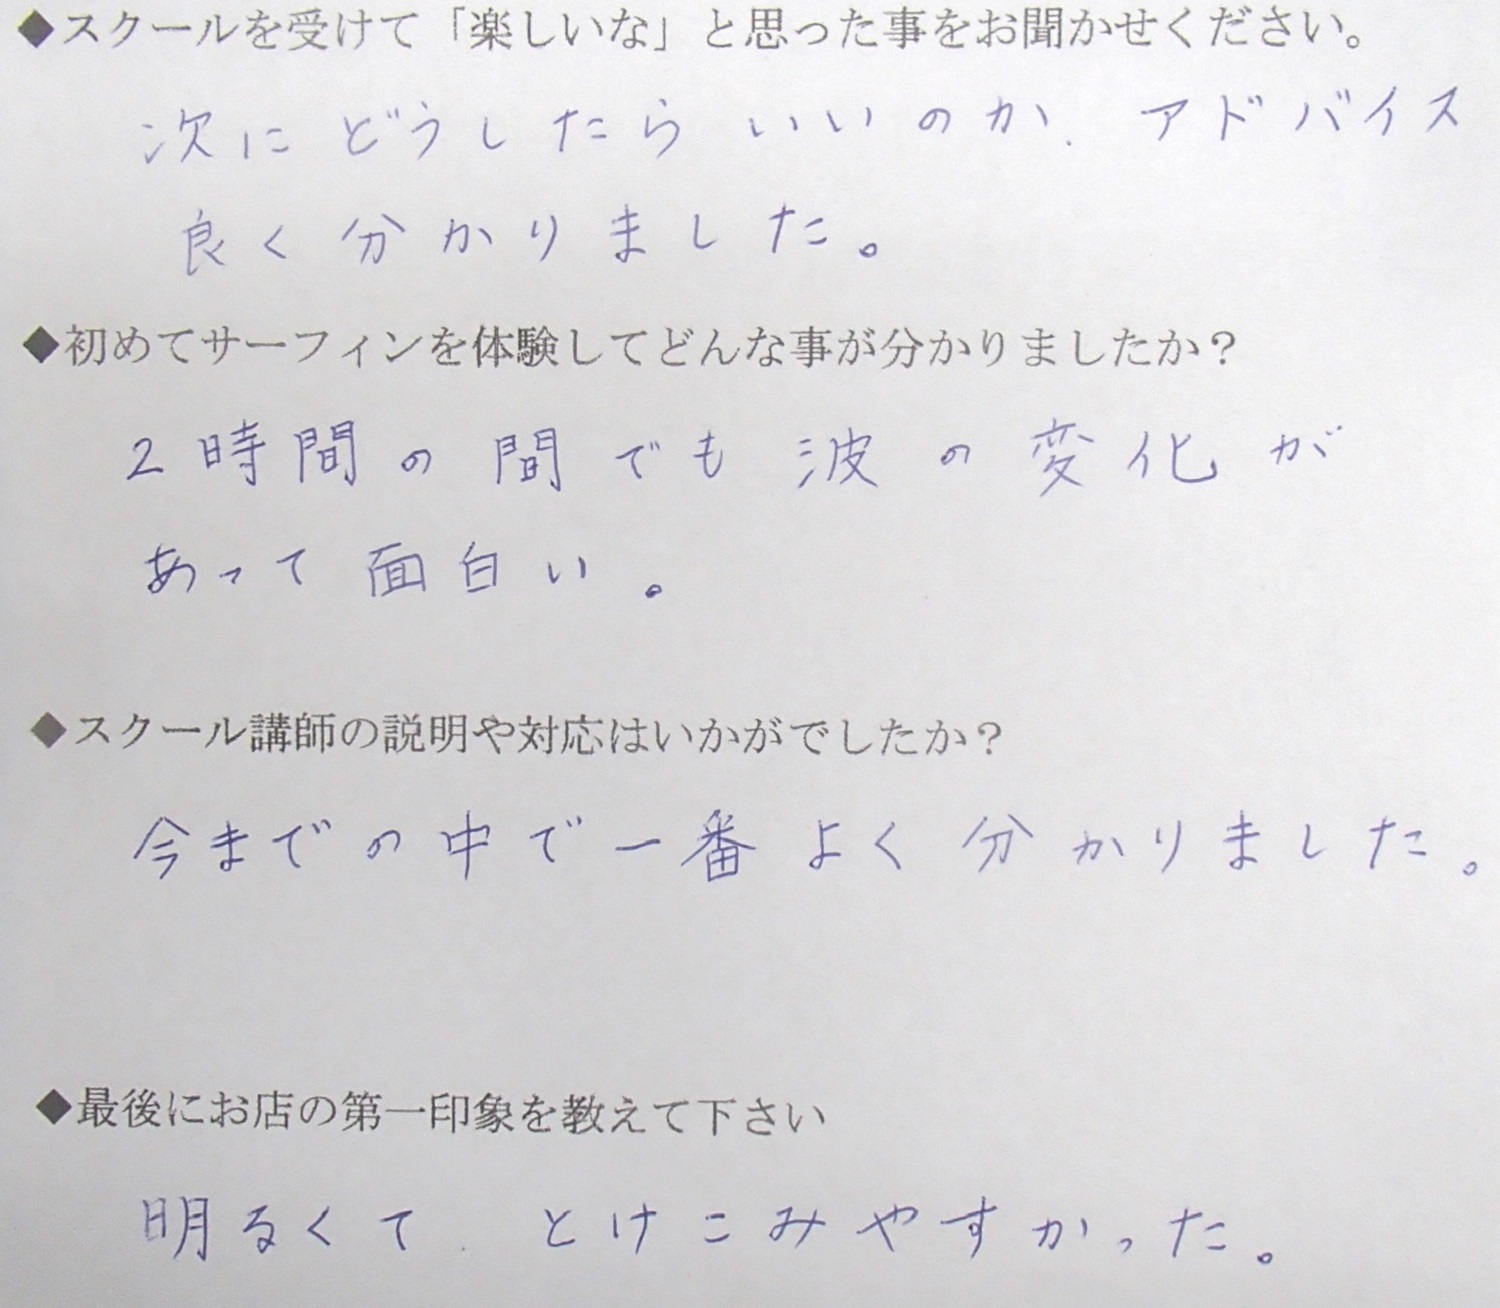 ◆スクールを受けて「楽しいな」と思った事をお聞かせください。
次にどうしたらいいのか、アドバイス
良く分かりました。
◆初めてサーフィンを体験してどんな事が分かりましたか？
2時間の間でも波の変化が
あって面白い。
◆スクール講師の説明や対応はいかがでしたか？
今までの中で一番よく分かりました。
◆最後にお店の第一印象を教えて下さい
明るくて、とけこみやすかった。